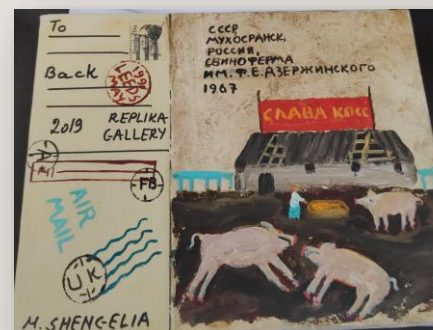 To
Back
1991
LEEDS
MAY
2019 REPLIKA
GALLERY
A
FB
AIR
MAIL
UK
M. SHENGELIA
СССР,
МУХОСРАНСК,
РОССИИ,
СВИНОФЕРМА
ИМ. Ф.Е.ДЗЕРЖИНСКОГО
1967
СЛАВА КПСС